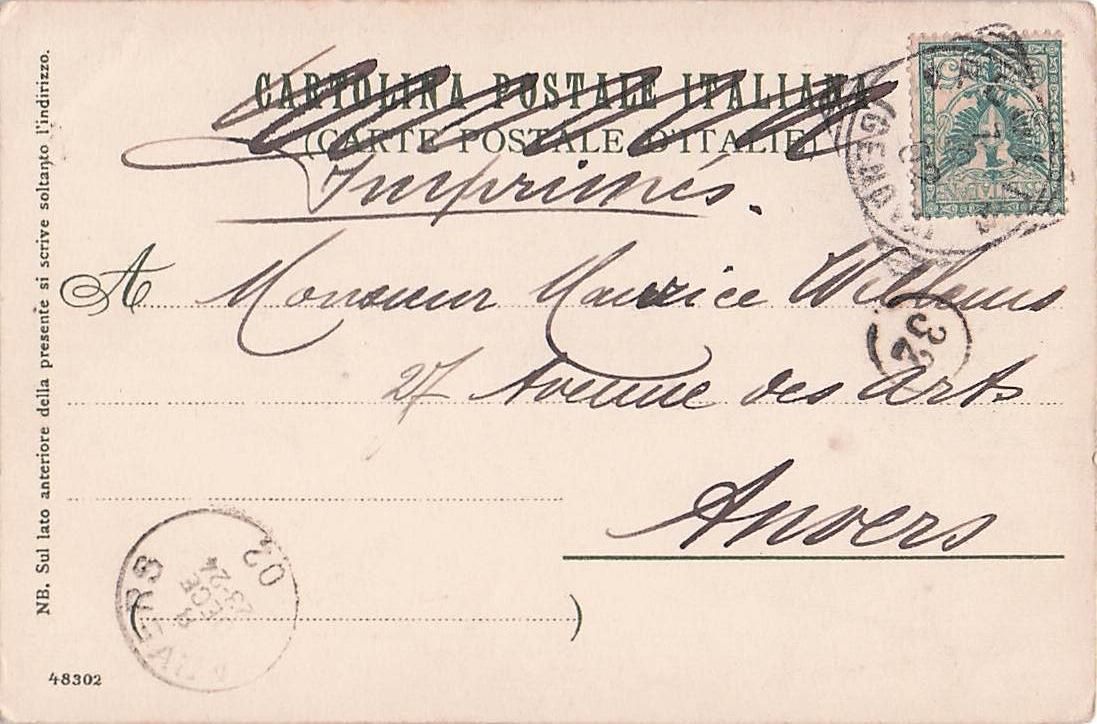 CARTOLINA POSTALE ITALIANA
(CARTE POSTALE D'ITALIE)
Imprimés.
A Monsieur Maurice Willems
27 Avenue des Arts
Anvers
NB. Sul lato anteriore della presente si scrive soltanto l'indirizzo.
48302
(GENOVA)
32
ANVERS
DECE
23-24
02